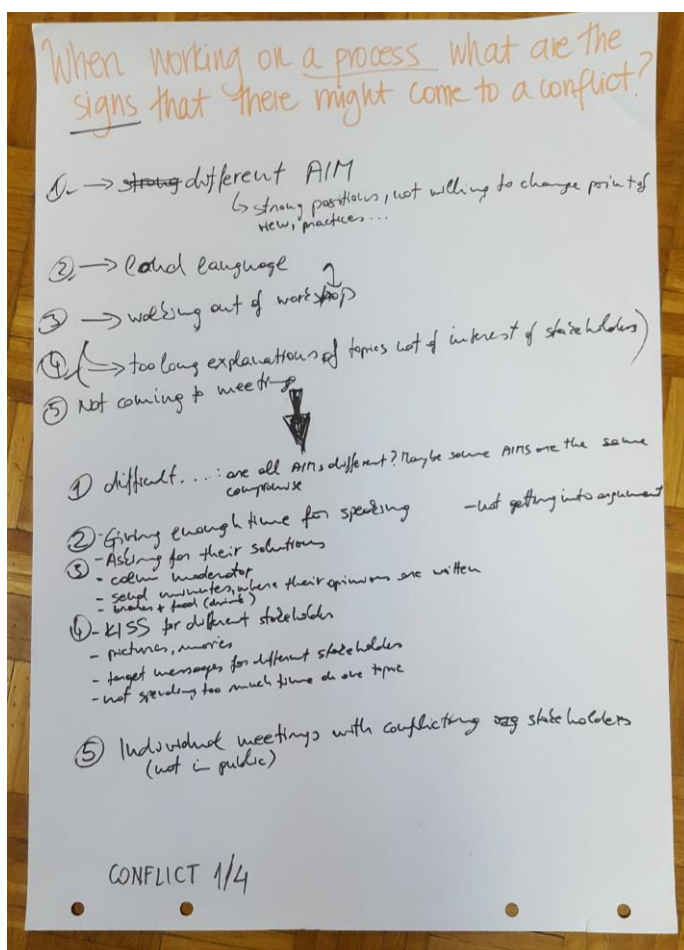 When working on a process what are the
signs that there might come to a conflict?
1. → strong different AIM
↳ strong positions, not willing to change point of
view, practices...
2. → loud language
3 → walking out of workshop
4 (→ too long explanations of topics not of interest of stakeholders)
5 Not coming to meeting
1 difficult....: are all AIMs different? Maybe some AIMs are the same
compromise
2 - Giving enough time for speaking - not getting into argument
3 - Asking for their solutions
- calm moderator
- send minutes, where their opinions are written
- breaks + food (drink)
4 - KISS for different stakeholders
- pictures, movies
- target messages for different stakeholders
- not spending too much time on one topic
5 Individual meetings with conflicting stakeholders
(not in public)
CONFLICT 1/4